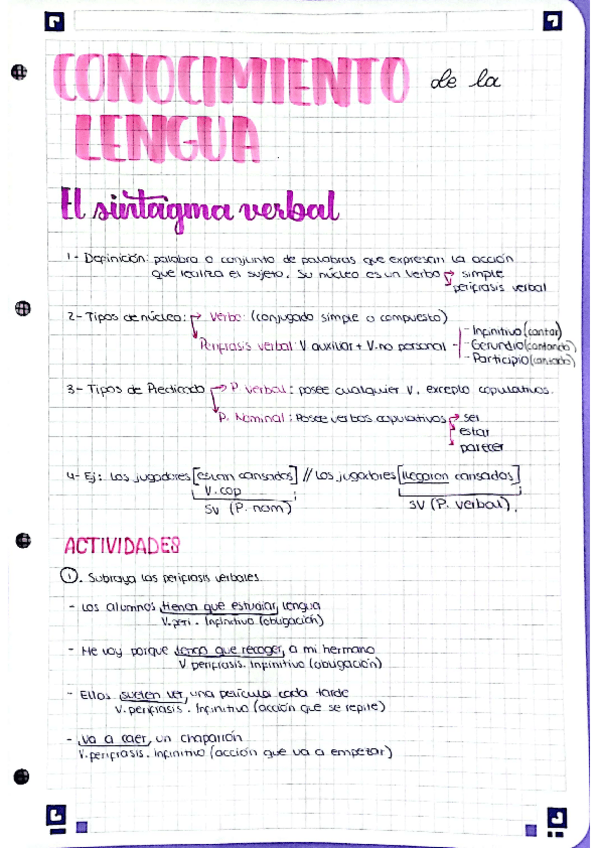 CONOCIMIENTO de la
LENGUA
El sintagma verbal
1- Definición: palabra o conjunto de palabras que expresan la acción
que realiza el sujeto. Su núcleo es un verbo → simple
perífrasis verbal
2- Tipos de núcleo: → Verbo: (conjugado simple o compuesto)
Perífrasis verbal: V auxiliar + V. no personal - Infinitivo (cantar)
- Gerundio (cantando)
- Participio (cantado)
3- Tipos de Predicado → P verbal: posee cualquier V, excepto copulativos.
P. Nominal: Posee verbos copulativos → ser
estar
parecer
4- Ej: Los jugadores [están cansados] // Los jugadores [llegaron cansados]
V. cop
SV (P. nom) SV (P. verbal).
ACTIVIDADES
1. Subraya las perífrasis verbales
- Los alumnos tienen que estudiar, lengua
V. peri. Infinitivo (obligación)
- Me voy porque tengo que recoger, a mi hermano
V perífrasis. Infinitivo (obligación)
- Ellos suelen ver, una película cada tarde
V. perífrasis. Infinitivo (acción que se repite)
- Va a caer, un chaparrón
V. perífrasis. Infinitivo (acción que va a empezar)